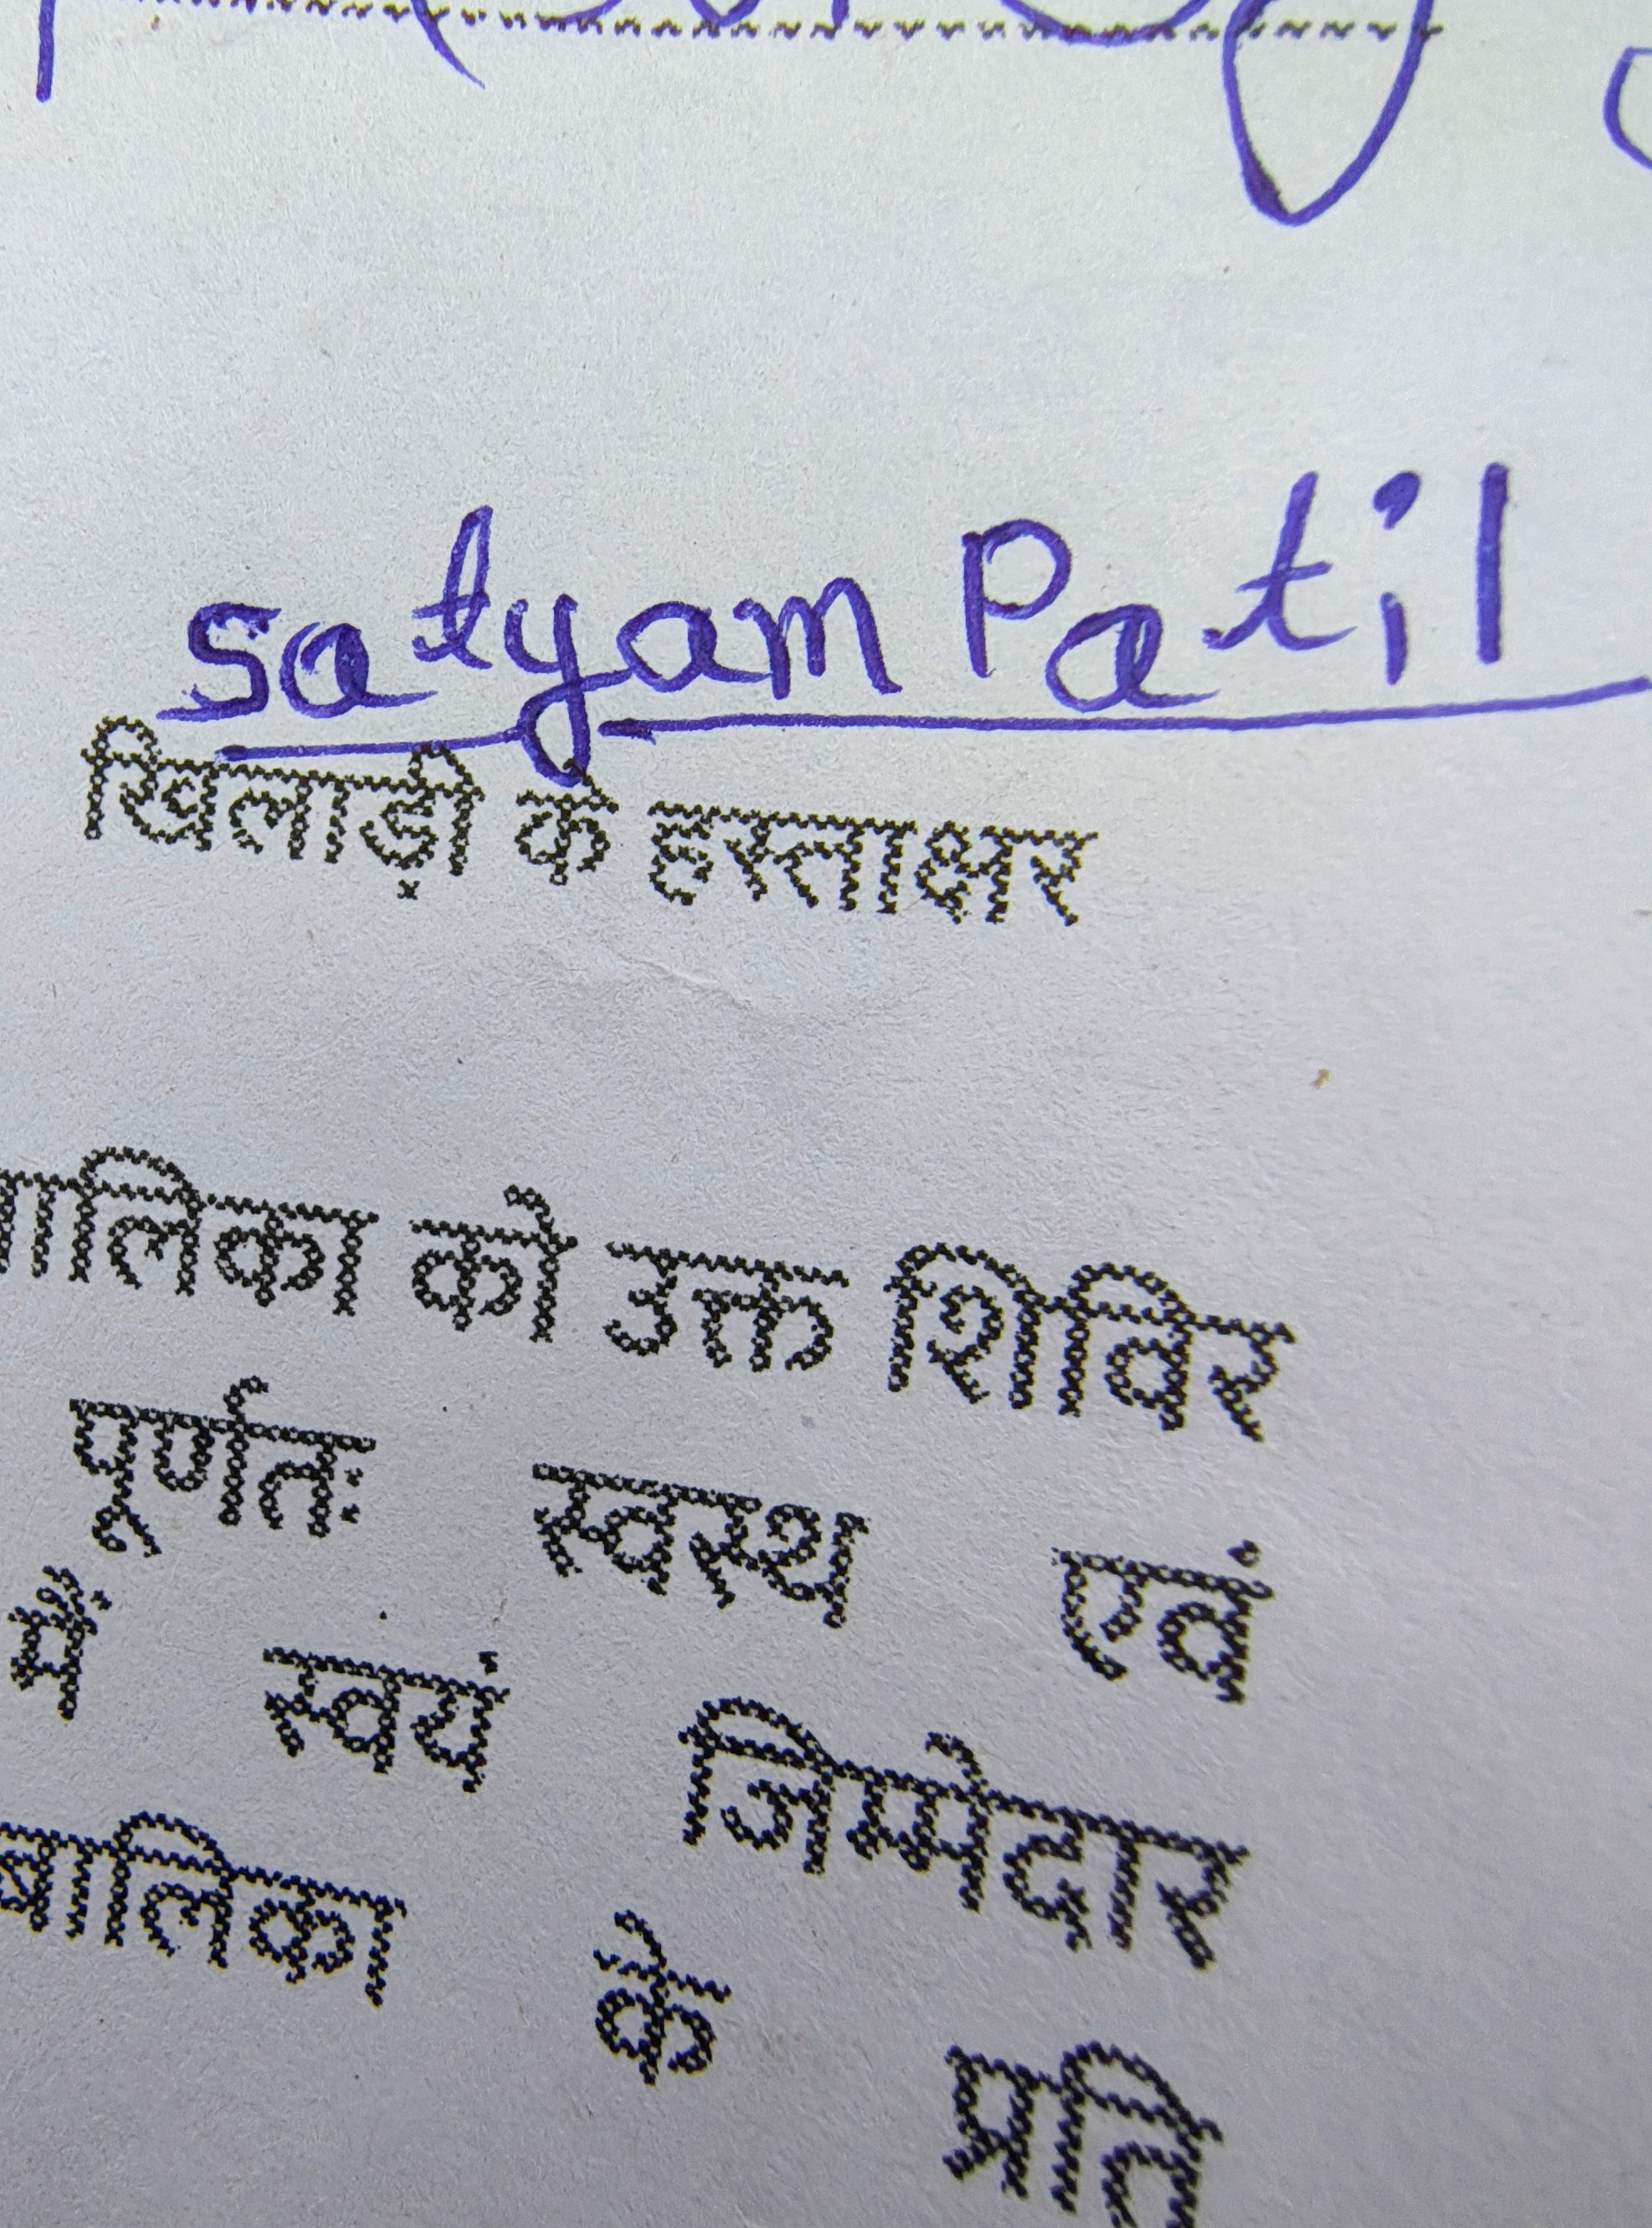 satyam Patil
खिलाड़ी के हस्ताक्षर
को उक्त शिविर
पूर्णतः स्वस्थ एवं
में स्वयं जिम्मेदार
बालिका के प्रति